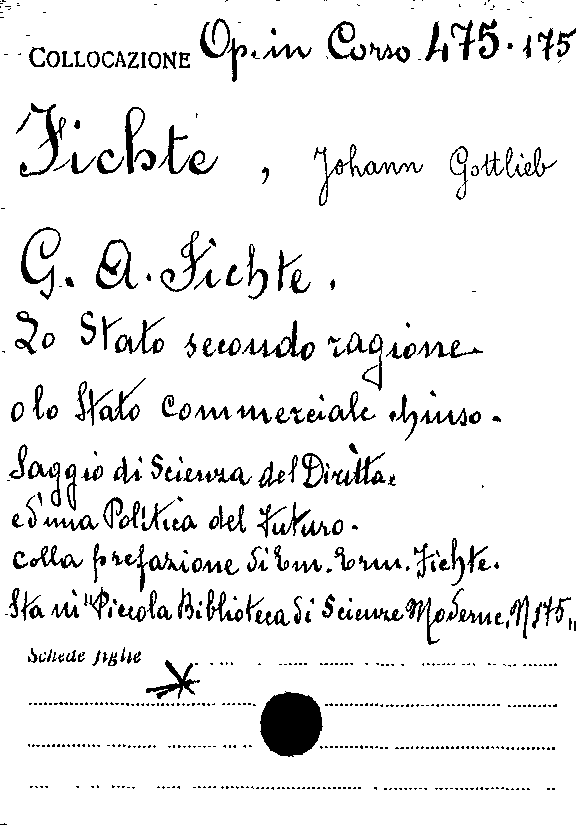 COLLOCAZIONE Op. in Corso 475. 175
Fichte, Johann Gottlieb
G. A. Fichte.
Lo Stato secondo ragione
o lo Stato commerciale chiuso.
Saggio di Scienza del Diritto
e d'una Politica del Futuro.
colla prefazione di Em. Erm. Fichte.
Sta in "Piccola Biblioteca di Scienze Moderne, N 175"
Schede figlie